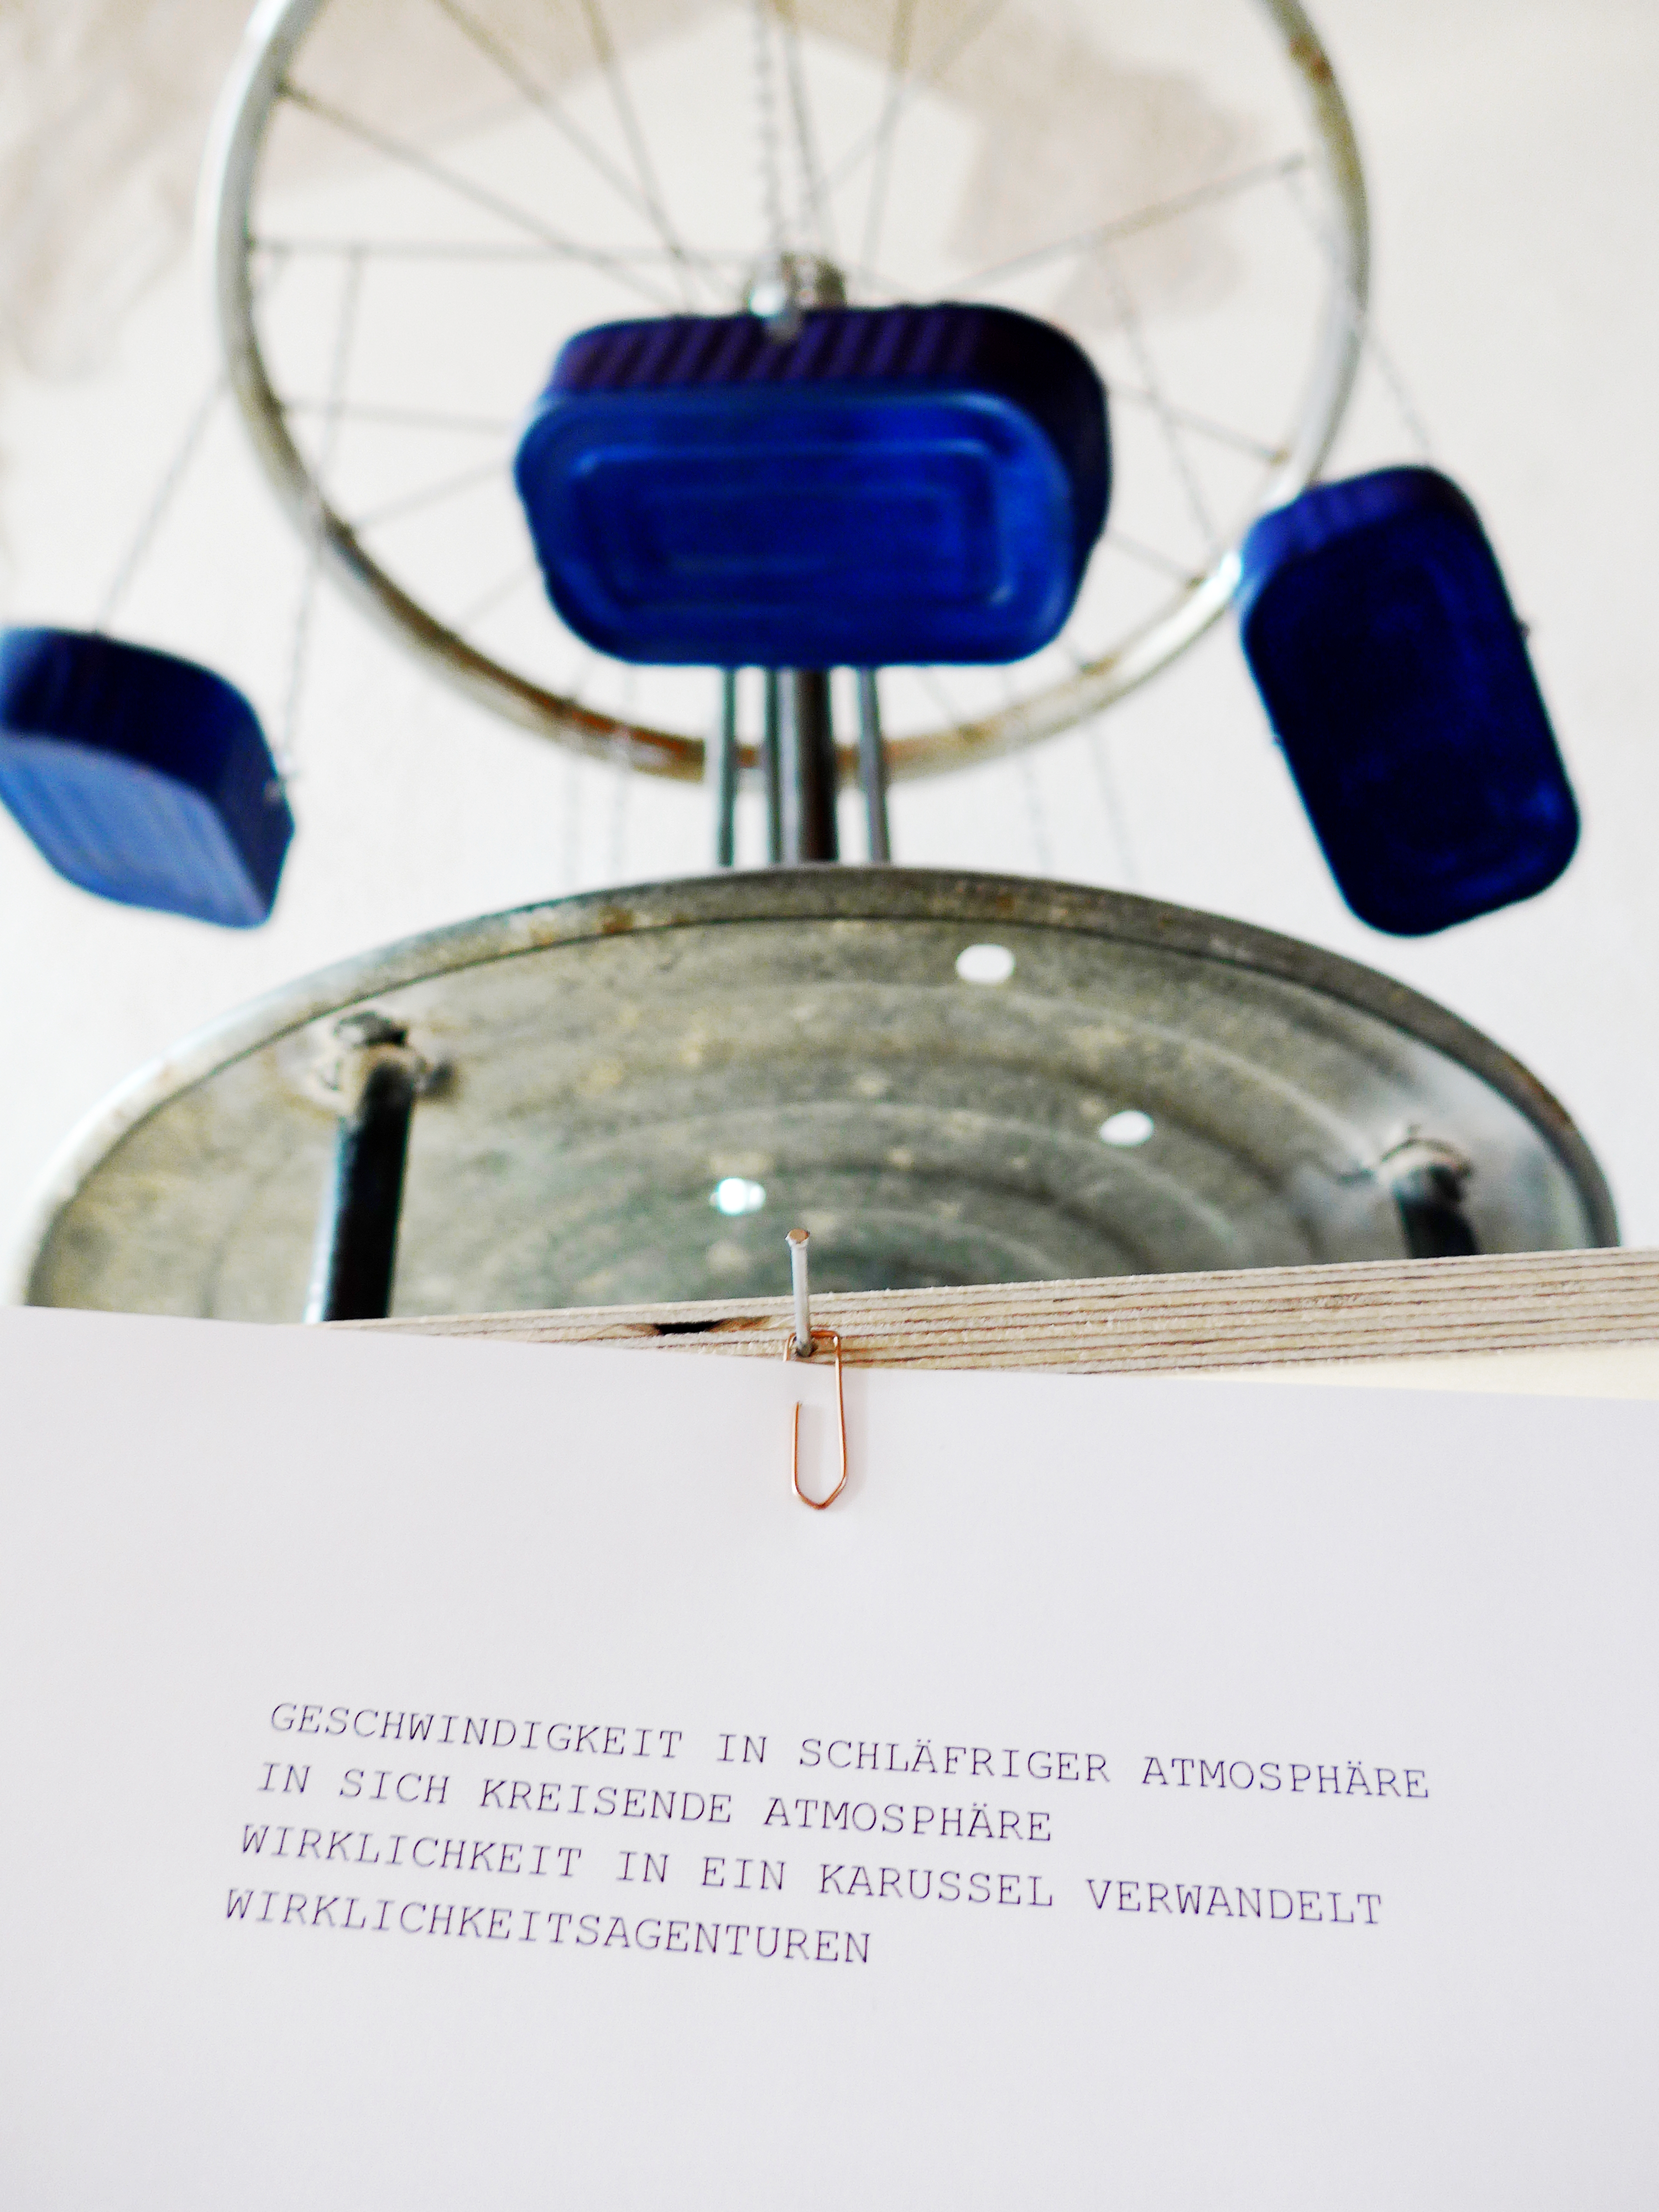 GESCHWINDIGKEIT IN SCHLÄFRIGER ATMOSPHÄRE
IN SICH KREISENDE ATMOSPHÄRE
WIRKLICHKEIT IN EIN KARUSSEL VERWANDELT
WIRKLICHKEITSAGENTUREN